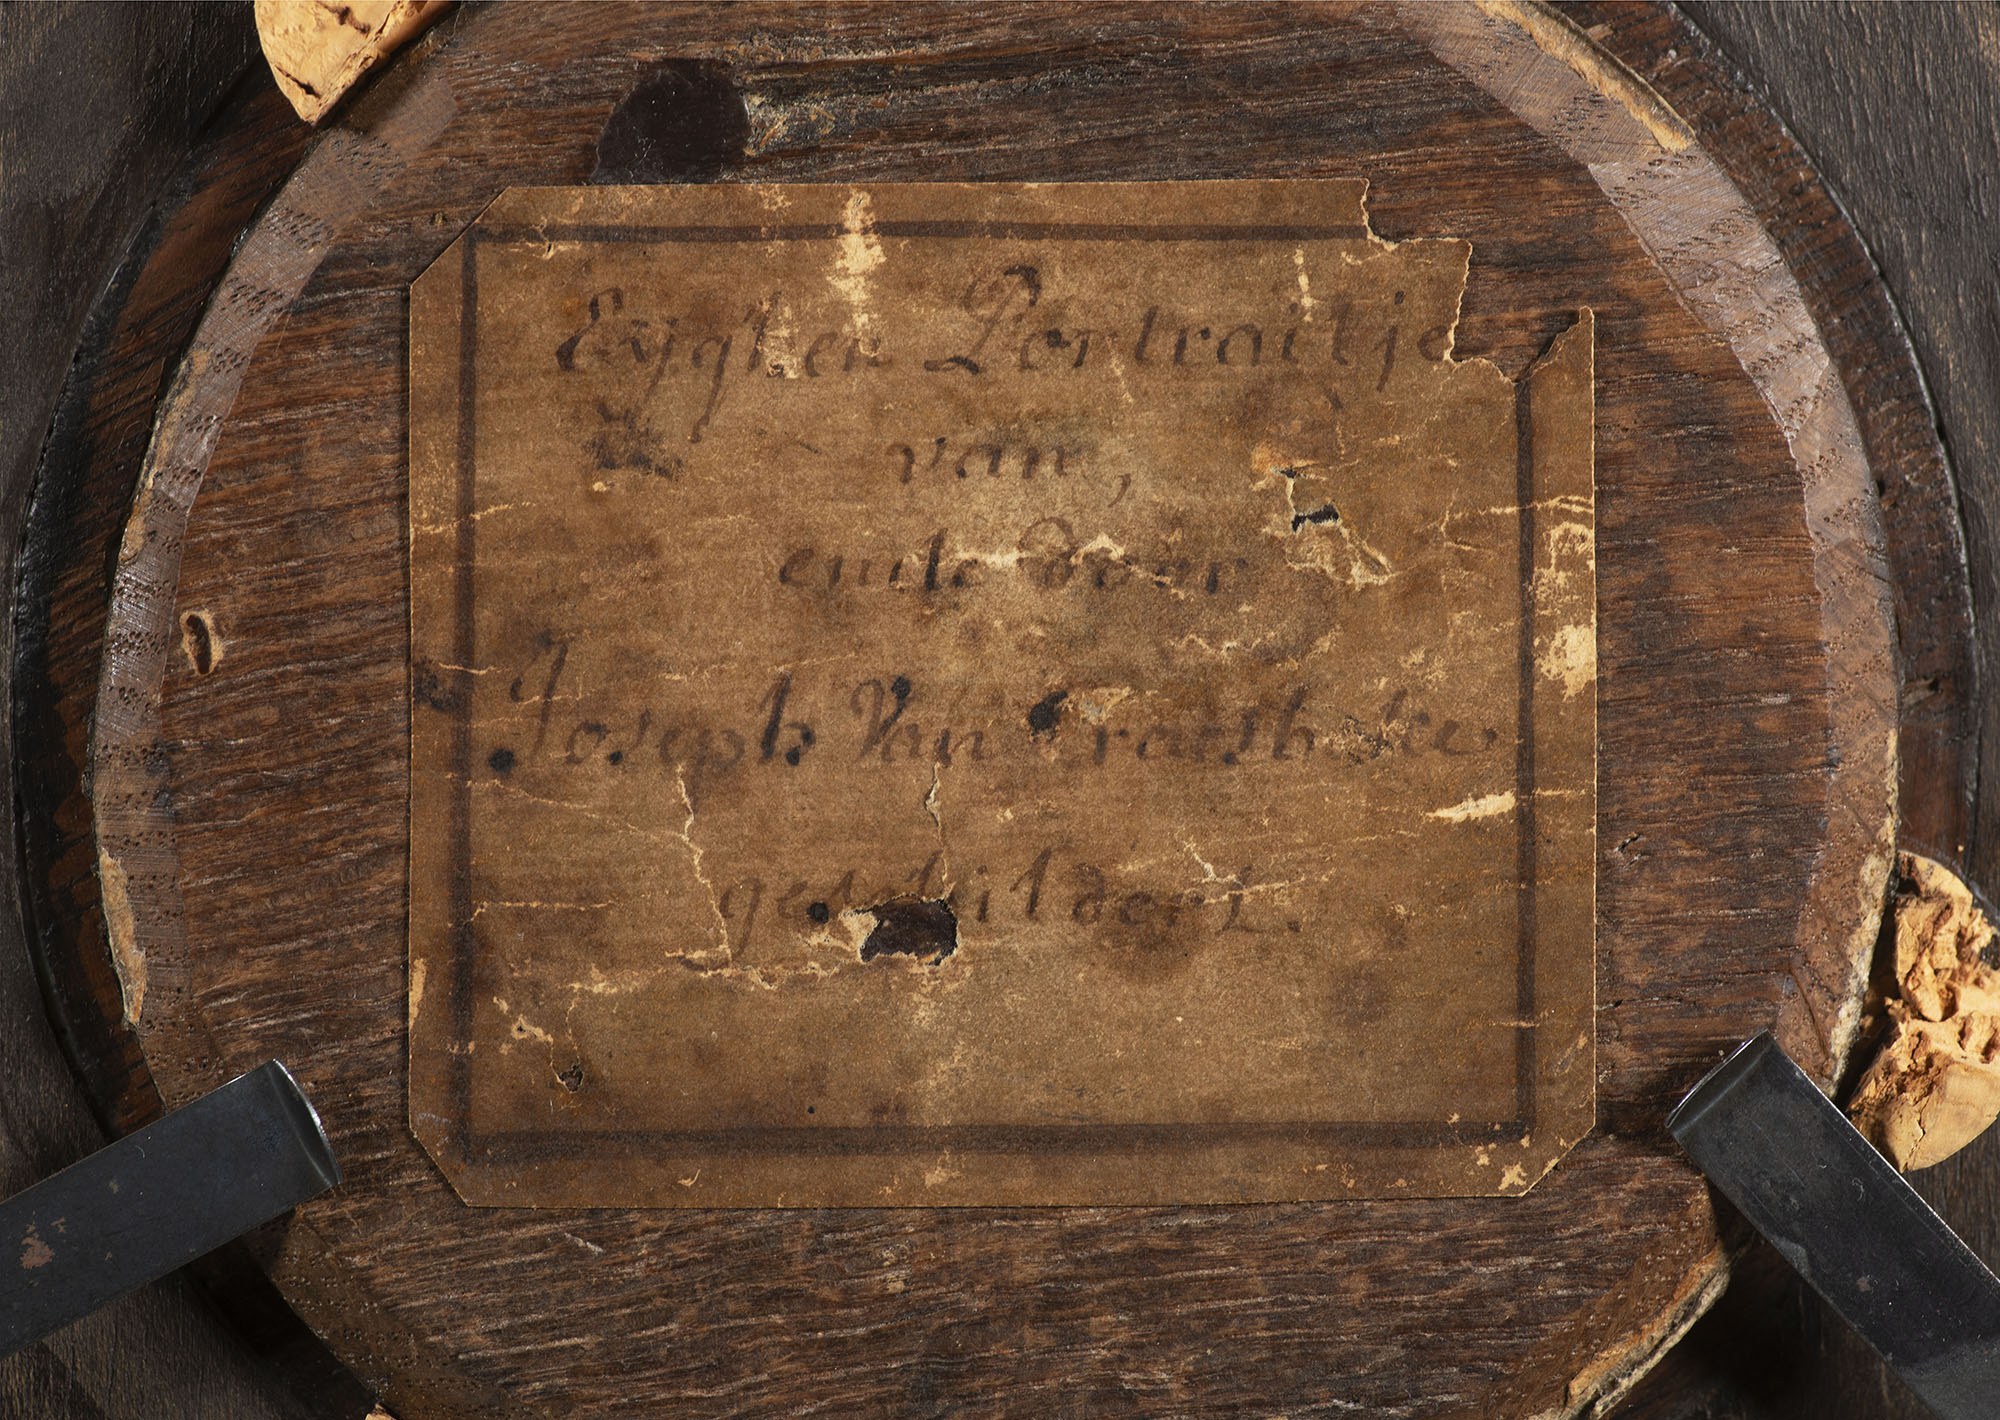 Eyghen Portraitje
van,
ende door
Joseph Van Craesbeke
geschildert.